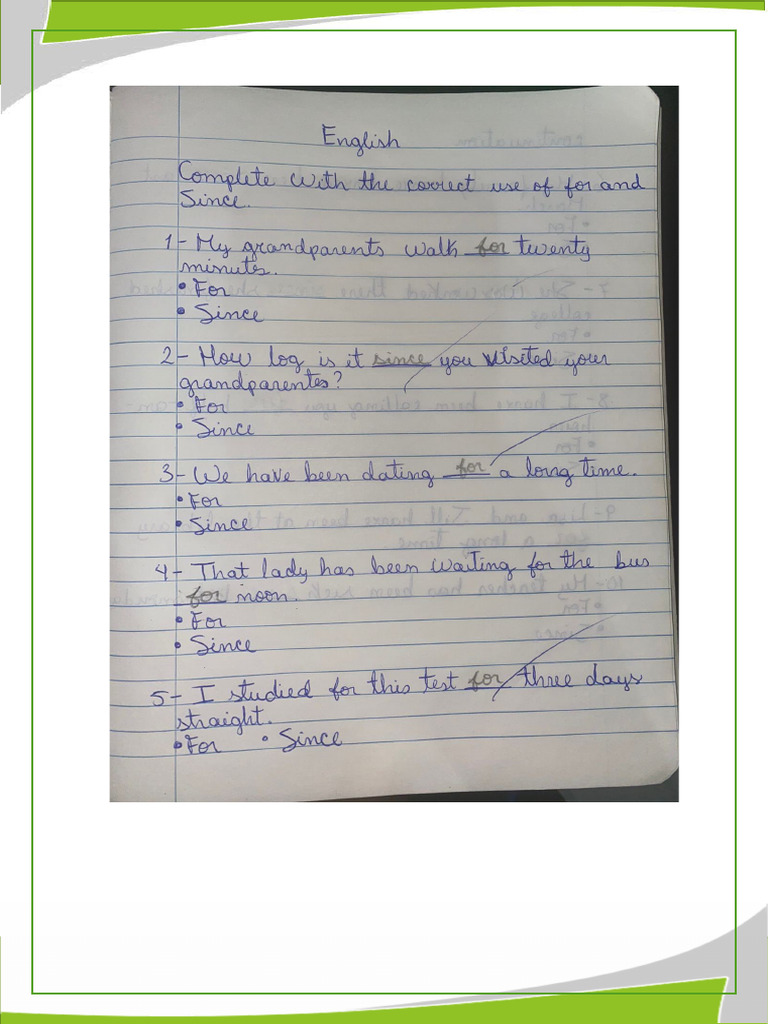 English
Complete with the correct use of for and
Since.
1- My grandparents walk for twenty
minutes.
• For
• Since
2- How log is it since you visited your
grandparentes?
• For
• Since
3- We have been dating for a long time.
• For
• Since
4- That lady has been waiting for the bus
for noon.
• For
• Since
5- I studied for this test for three days
straight.
• For • Since